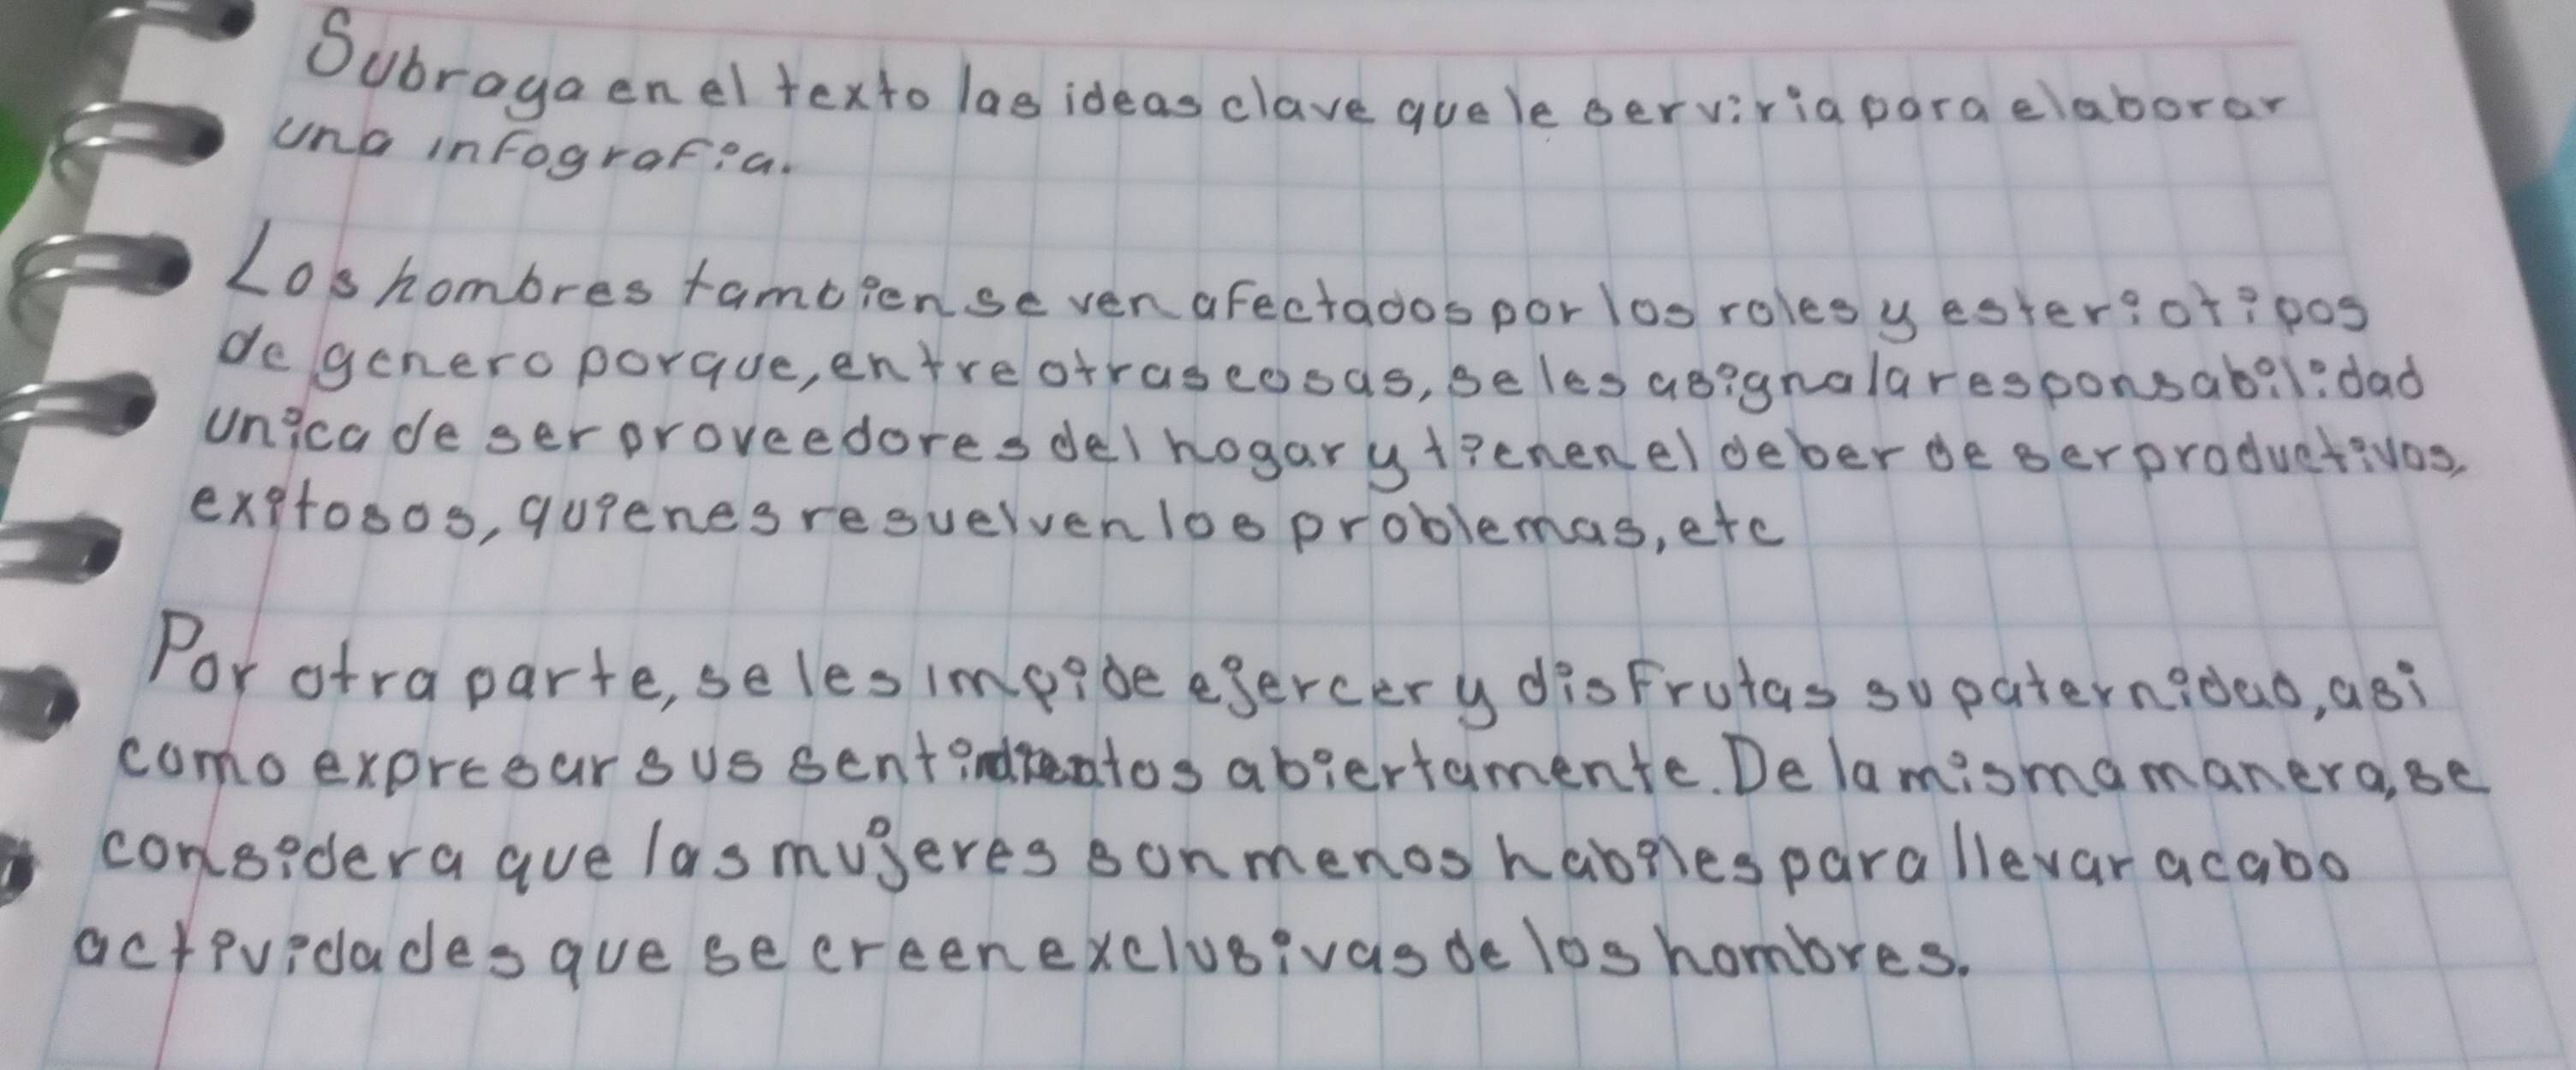 Subraya en el texto las ideas clave que le serviria para elaborar
una infografia.
Los hombres tambien se ven afectados por los roles y esteriotipos
de genero porque, entre otras cosas, se les asigna la responsabilidad
unica de ser proveedores del hogar y tienen el deber de ser productivos,
exitosos, quienes resuelven los problemas, etc
Por otra parte, se les impide ejercer y disfrutas su paternidad, asi
como expresar sus abiertamente. De la misma manera, se
considera que las mujeres son menos habiles para llevar acabo
actividades que se creen exclusivas de los hombres.